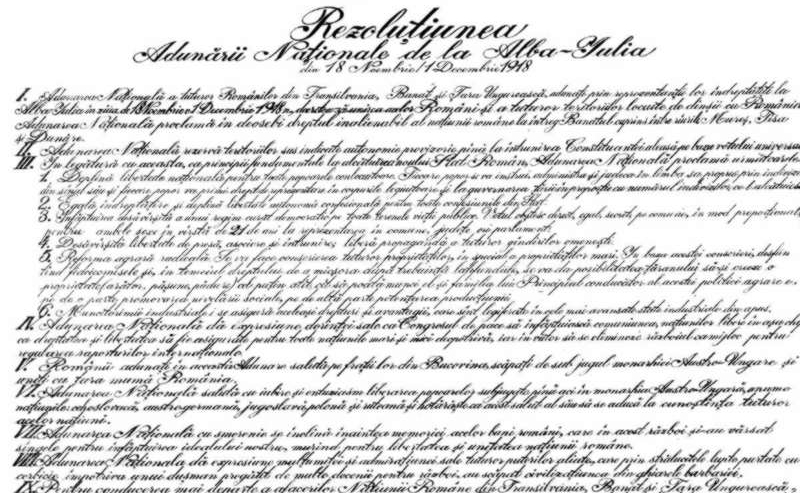 Rezoluțiunea
Adunării Naționale de la Alba-Iulia
din 18 Noembrie/1 Decembrie 1918
I. Adunarea Națională a tuturor Românilor din Transilvania, Banat și Țara Ungurească, adunați prin reprezentanții lor îndreptățiți la
Alba-Iulia în ziua de 18 Noembrie/1 Decembrie 1918, decretează unirea acelor Români și a tuturor teritoriilor locuite de dînșii cu România.
Adunarea Națională proclamă îndeosebi dreptul inalienabil al națiunii române la întreg Banatul cuprins între rîurile Mureș, Tisa
și Dunăre.
II. Adunarea Națională rezervă teritoriilor sus indicate autonomie provizorie pînă la întrunirea Constituantei aleasă pe baza votului universal
III. În legătură cu aceasta, ca principii fundamentale la alcătuirea noului Stat Român, Adunarea Națională proclamă următoarele:
1. Deplină libertate națională pentru toate popoarele conlocuitoare. Fiecare popor se va instrui, administra și judeca în limba sa proprie prin indivizi
din sînul său și fiecare popor va primi drept de reprezentare în corpurile legiuitoare și la guvernarea țării în proporție cu numărul indivizilor ce-l alcătuiesc
2. Egală îndreptățire și deplină libertate autonomă confesională pentru toate confesiunile din Stat.
3. Înfăptuirea desăvîrșită a unui regim curat democratic pe toate terenele vieții publice. Votul obștesc, direct, egal, secret, pe comune, în mod proporțional
pentru ambele sexe în vîrstă de 21 de ani la reprezentarea în comune, județe ori parlament.
4. Desăvîrșită libertate de presă, asociere și întrunire; liberă propagandă a tuturor gîndurilor omenești.
5. Reforma agrară radicală. Se va face conscrierea tuturor proprietăților, în special a proprietăților mari. În baza acestei conscrieri, desființ
înd fideicomisele și, în temeiul dreptului de a micșora după trebuință latifundiile, se va da posibilitatea țăranului să-și creeze o
proprietate (arător, pășune, pădure) cel puțin atît cît să poată munci el și familia lui. Principiul conducător al acestei politici agrare e,
pe de o parte promovarea nivelării sociale, pe de altă parte potențarea producțiunii.
6. Muncitorimii industriale i se asigură aceleași drepturi și avantagii, care sînt legiferate în cele mai avansate state industriale din apus.
IV. Adunarea Națională dă expresiune dorinței sale ca Congresul de pace să înfăptuiască comuniunea națiunilor libere în așa chip
ca dreptatea și libertatea să fie asigurate pentru toate națiunile mari și mici deopotrivă, iar în viitor să se elimineze războiul ca mijloc pentru
regularea raporturilor internaționale.
V. Românii adunați în această Adunare salută pe frații lor din Bucovina, scăpați de sub jugul monarhiei Austro-Ungare și
uniți cu țara mumă România.
VI. Adunarea Națională salută cu iubire și entuziasm liberarea popoarelor subjugate pînă aci în monarhia Austro-Ungară, anume
națiunile cehoslovacă, austrogermană, jugoslavă, polonă și ruteană și hotărăște ca acest salut al său să se aducă la cunoștința tuturor
acelor națiuni.
VII. Adunarea Națională cu smerenie se înclină înaintea memoriei acelor bani români, care în acest război și-au vărsat
sîngele pentru înfăptuirea idealului nostru, murind pentru libertatea și unitatea națiunii române.
VIII. Adunarea Națională dă expresiune mulțumirii și admirațiunei sale tuturor puterilor aliate, care prin strălucitele lupte purtate cu
cerbicie împotriva unui dușman pregătit de multe decenii pentru război, au scăpat civilizațiunea din ghiarele barbariei.
IX. Pentru conducerea mai departe a afacerilor Națiunii Române din Transilvania, Banat și Țara Ungurească,